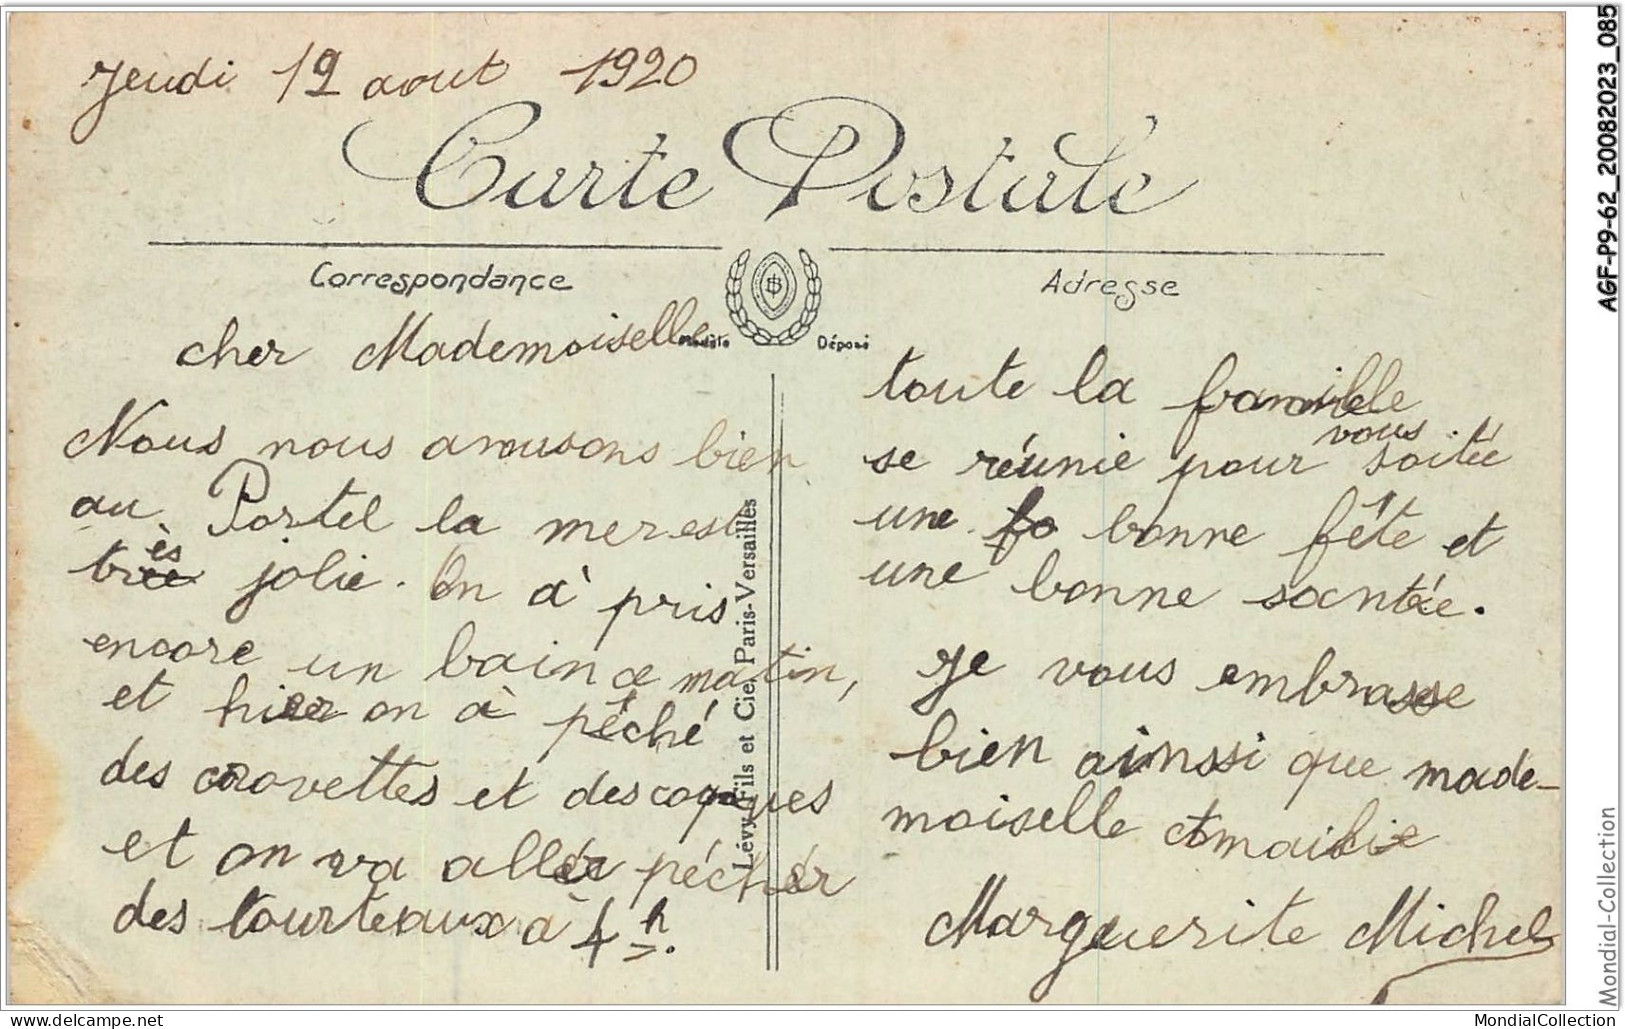 Jeudi 12 aout 1920
Carte Postale
Correspondance
Adresse
Modèle Déposé
cher Mademoiselle
Nous nous amusons bien
au Portel la mer est
très jolie. On à pris
encore un bain ce matin,
et hier on à pêché
des cravettes et des coques
et on va aller pécher
des tourteaux à 4 h.
toute la famille
se réunie pour vous soitée
une bonne fête et
une bonne santée.
Je vous embrasse
bien ainssi que made-
moiselle
Marguerite Michel
Lévy Fils et Cie, Paris-Versailles
AGF-P9-62_20082023_085
Mondial-Collection
www.delcampe.net
MondialCollection